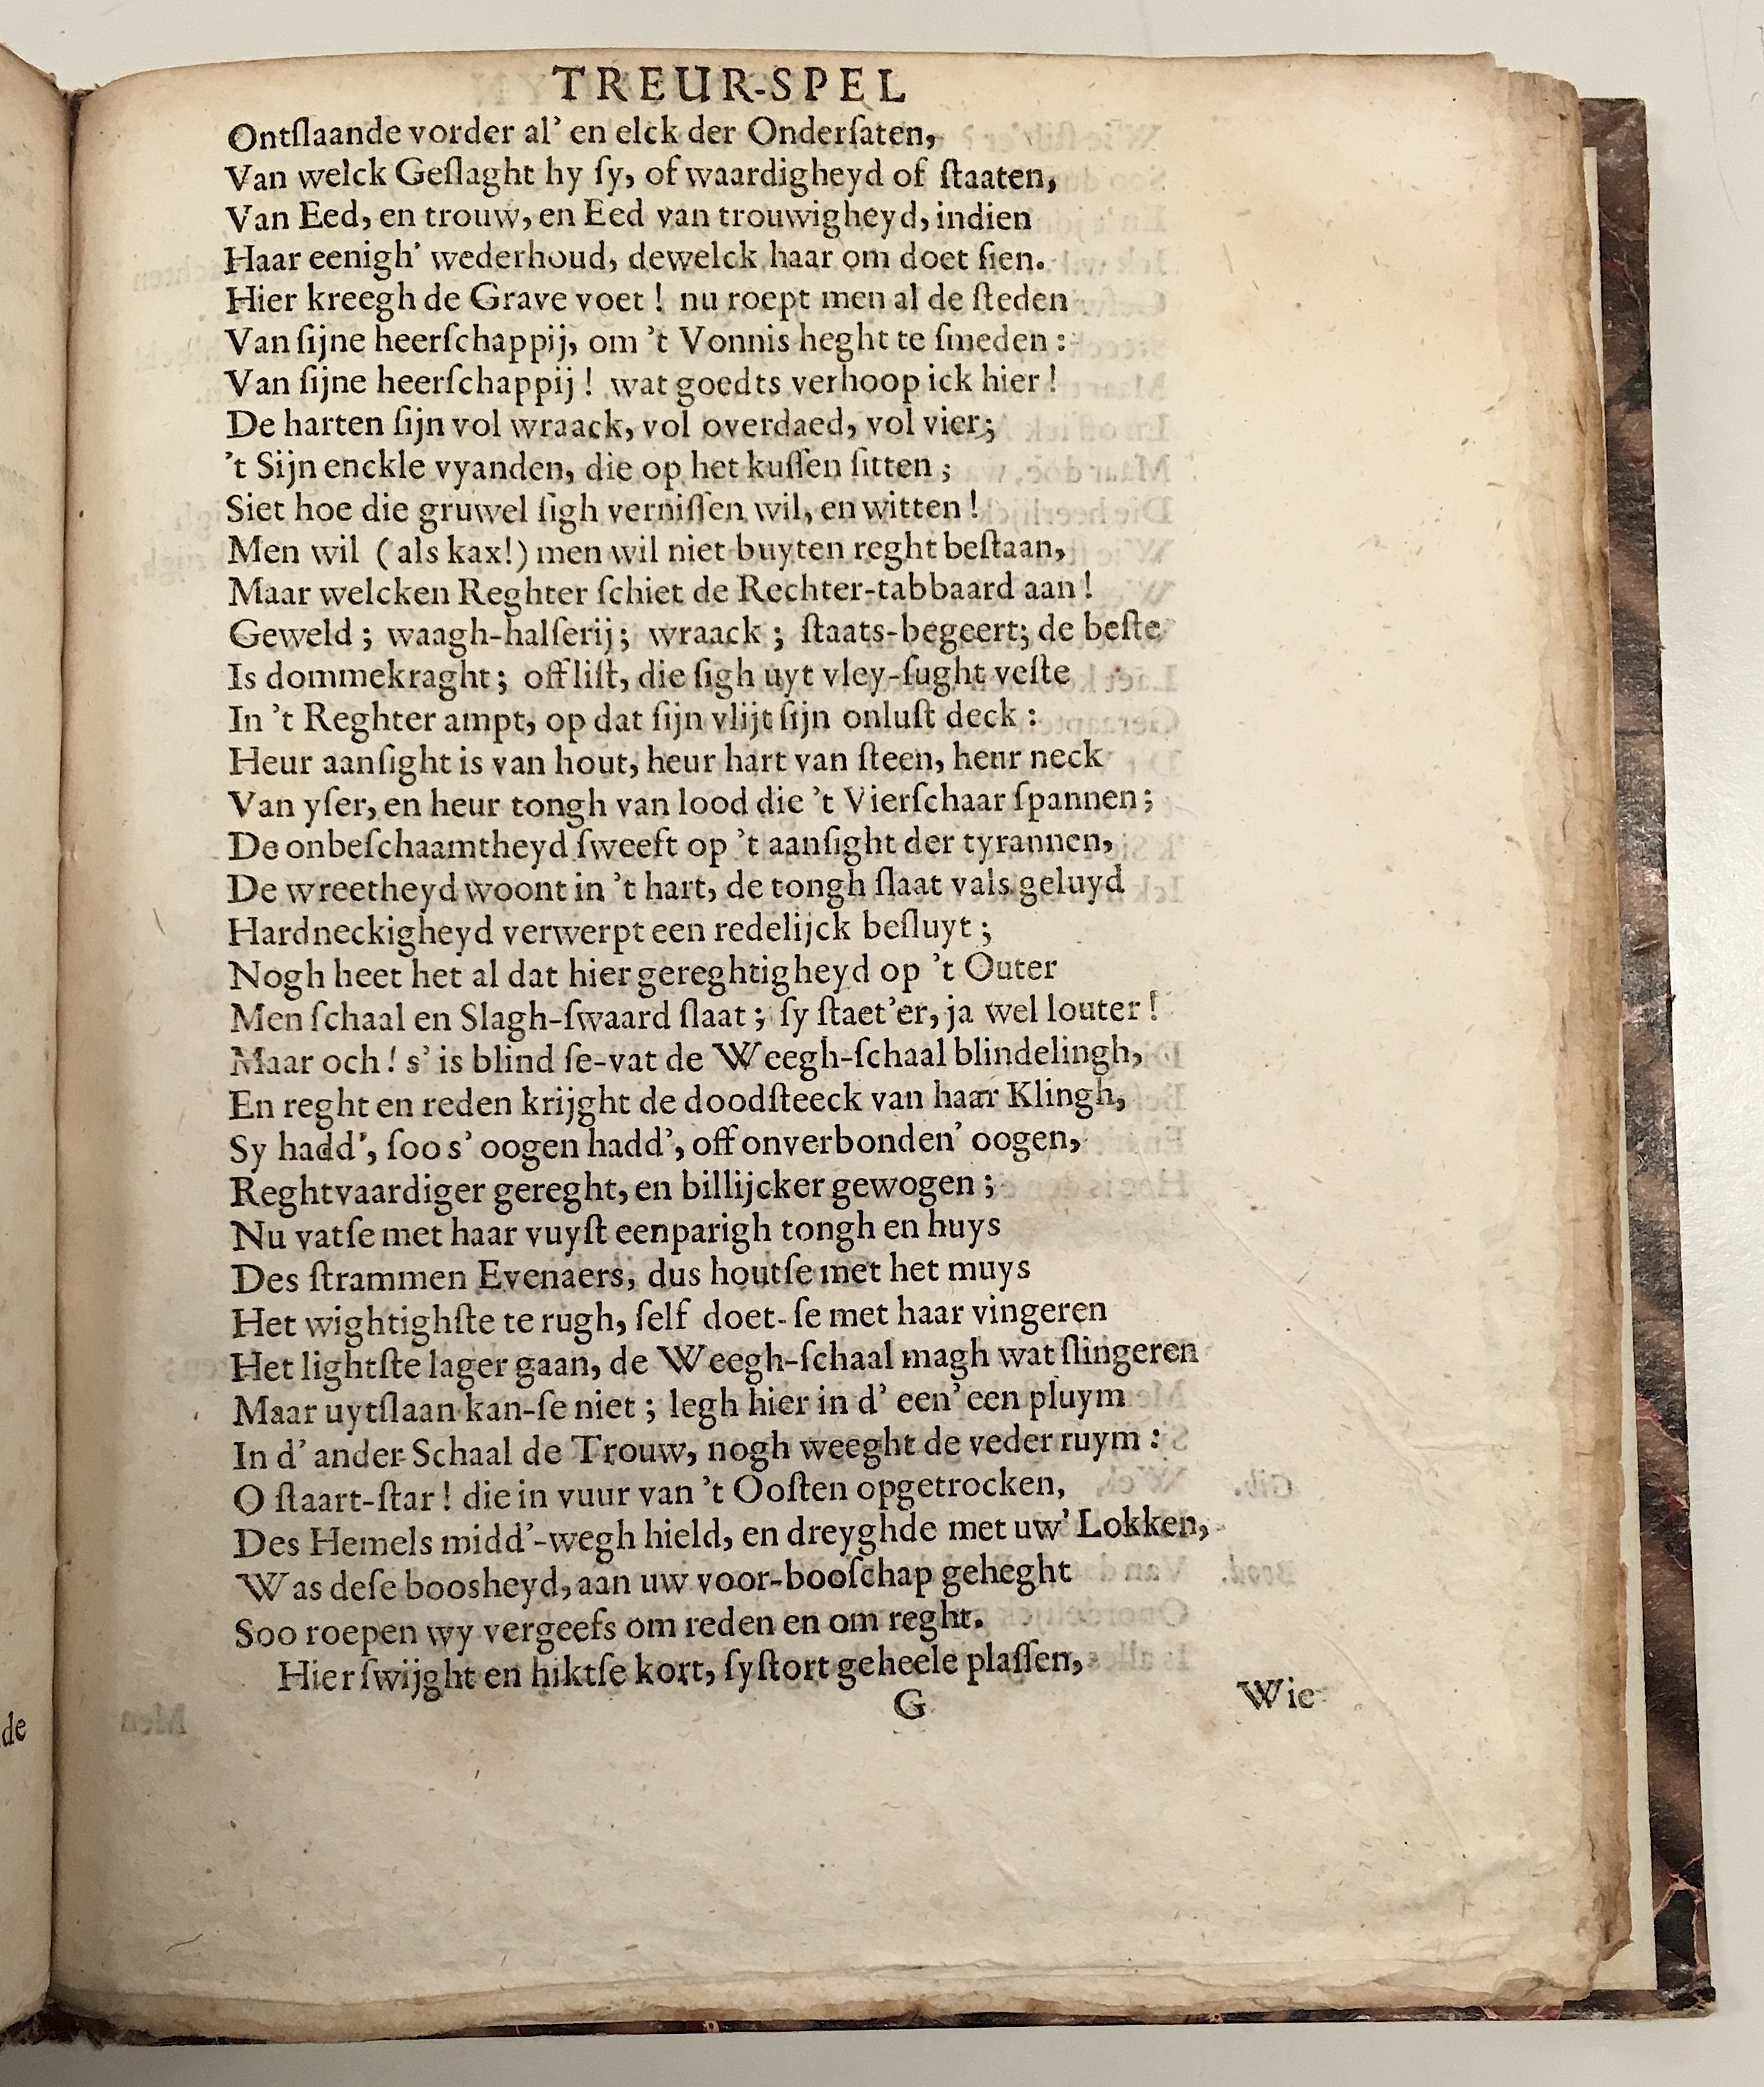 TREUR-SPEL
Ontſlaande vorder al’ en elck der Onderſaten,
Van welck Geſlaght hy ſy, of waardigheyd of ſtaaten,
Van Eed, en trouw, en Eed van trouwigheyd, indien
Haar eenigh’ wederhoud, dewelck haar om doet ſien.
Hier kreegh de Grave voet ! nu roept men al de ſteden
Van ſijne heerſchappij, om ’t Vonnis heght te ſmeden :
Van ſijne heerſchappij ! wat goedts verhoop ick hier !
De harten ſijn vol wraack, vol overdaed, vol vier;
’t Sijn enckle vyanden, die op het kuſſen ſitten ;
Siet hoe die gruwel ſigh verniſſen wil, en witten !
Men wil ( als kax!) men wil niet buyten reght beſtaan,
Maar welcken Reghter ſchiet de Rechter-tabbaard aan !
Geweld ; waagh-halſerij ; wraack ; ſtaats-begeert; de beſte
Is dommekraght ; off liſt, die ſigh uyt vley-ſught veſte
In ’t Reghter ampt, op dat ſijn vlijt ſijn onluſt deck :
Heur aanſight is van hout, heur hart van ſteen, heur neck
Van yſer, en heur tongh van lood die ’t Vierſchaar ſpannen ;
De onbeſchaamtheyd ſweeft op ’t aanſight der tyrannen,
De wreetheyd woont in ’t hart, de tongh ſlaat vals geluyd
Hardneckigheyd verwerpt een redelijck beſluyt ;
Nogh heet het al dat hier gereghtigheyd op ’t Outer
Men ſchaal en Slagh-ſwaard ſlaat ; ſy ſtaet’er, ja wel louter !
Maar och ! s’ is blind ſe-vat de Weegh-ſchaal blindelingh,
En reght en reden krijght de doodſteeck van haar Klingh,
Sy hadd’, ſoo s’ oogen hadd’, off onverbonden’ oogen,
Reghtvaardiger gereght, en billijcker gewogen ;
Nu vatſe met haar vuyſt eenparigh tongh en huys
Des ſtrammen Evenaers, dus houtſe met het muys
Het wightighſte te rugh, ſelf doet-ſe met haar vingeren
Het lightſte lager gaan, de Weegh-ſchaal magh wat ſlingeren
Maar uytſlaan kan-ſe niet ; legh hier in d’ een’ een pluym
In d’ ander Schaal de Trouw, nogh weeght de veder ruym :
O ſtaart-ſtar ! die in vuur van ’t Ooſten opgetrocken,
Des Hemels midd’-wegh hield, en dreyghde met uw’ Lokken,
Was deſe boosheyd, aan uw voor-booſchap geheght
Soo roepen wy vergeefs om reden en om reght.
Hier ſwijght en hiktſe kort, ſy ſtort geheele plaſſen,
G
Wie
de